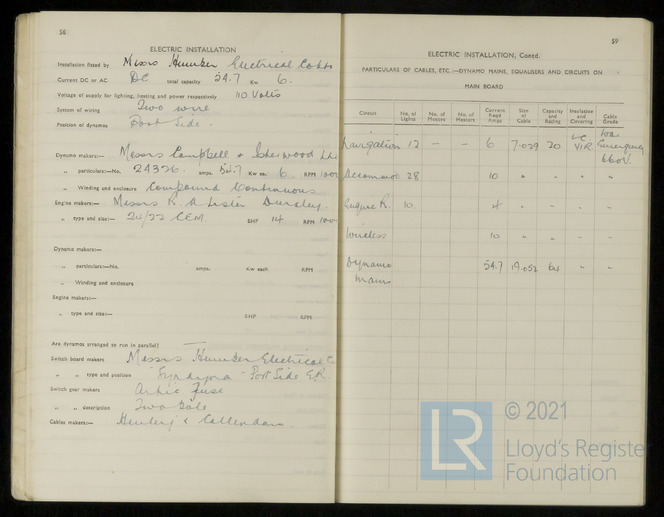 56
ELECTRIC INSTALLATION
Installation fitted by Messrs Electrical
Current DC or AC DC total capacity 54.7 Kw 6.
Voltage of supply for lighting, heating and power respectively 110 Volts
System of wiring Two wire
Position of dynamos Port Side.
Dynamo makers:— Messrs Campbell & Isherwood Ltd
„ particulars:—No. 24326. amps. 54.7 Kw ea. 6 RPM 1000
„ Winding and enclosure Compound Continuous
Engine makers:— Messrs R. A Lister Dursley.
„ type and size:— BHP 14 RPM 1000
Dynamo makers:—
„ particulars:—No. amps. Kw each RPM
„ Winding and enclosure
Engine makers:—
„ type and size:— BHP RPM
Are dynamos arranged to run in parallel?
Switch board makers Messrs Electrical
„ „ type and position Port Side E.R.
Switch gear makers Fuse
„ „ description Two Pole
Cables makers:— Henley & Callenders
59
ELECTRIC INSTALLATION, Contd.
PARTICULARS OF CABLES, ETC.—DYNAMO MAINS, EQUALISERS AND CIRCUITS ON
MAIN BOARD
Circuit No. of Lights No. of Motors No. of Heaters Current Reqd Amps Size of Cable Capacity and Rating Insulation and Covering Cable Grade
Navigation 12 — — 6 7.029 20 LC VIR Emergency 660V.
Accommod 28 10 „ „ „ „
Engine R. 10 4 „ „ „ „
Wireless 10 „ „ „ „
Dynamo Mains 54.7 19.052 64 „ „
LR © 2021
Lloyd's Register
Foundation